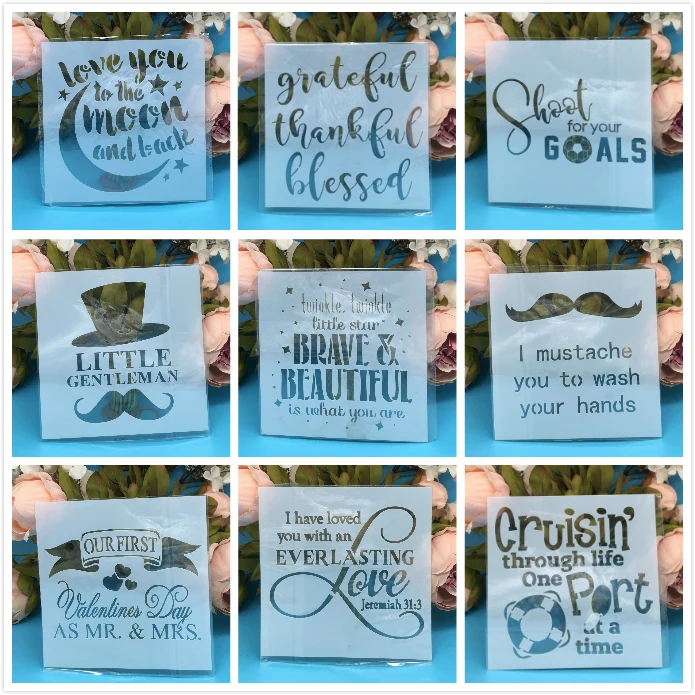 love you
to the
moon
and back
grateful
thankful
blessed
Shoot
for your
GOALS
LITTLE
GENTLEMAN
twinkle, twinkle
little star
BRAVE &
BEAUTIFUL
is what you are
I mustache
you to wash
your hands
OUR FIRST
Valentines Day
AS MR. & MRS.
I have loved
you with an
EVERLASTING
Love
Jeremiah 31:3
Cruisin'
through life
One Port
at a
time